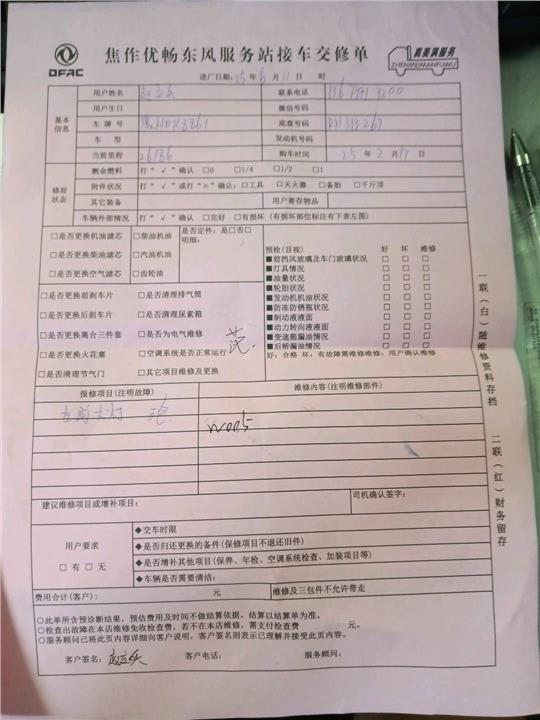 DFAC
焦作优畅东风服务站接车交修单
真美满服务
ZHENMEIMANFUWU
进厂日期:25年6月11日 时
基本信息
用户姓名 联系电话
用户生日 微信号码
车牌号 底盘号码
车型 发动机号码
当前里程 26186 购车时间 25年2月17日
修前状态
剩余燃料 打“√”确认 □0 □1/4 □1/2 □1
附件状况 打“√”或打“×”确认:□工具 □灭火器 □备胎 □千斤顶
其它装备 用户寄存物品
车辆外部情况 打“√”确认 □完好 □有损坏(有损坏部位标注有下表左图)
□是否更换机油滤芯 □柴油机油
□是否更换柴油滤芯 □汽油机油
□是否更换空气滤芯 □齿轮油
是否定件:是□否□
明细:
□是否更换前刹车片 □是否清理排气筒
□是否更换后刹车片 □是否清理尿素箱
□是否更换离合三件套 □是否为电气维修
□是否更换火花塞 □空调系统是否正常运行
□是否清理节气门 □其它项目维修及更换
预检(目视) 好 坏 维修
■前挡风玻璃及车门玻璃状况 □ □ □
■灯具情况 □ □ □
■油量状况 □ □ □
■轮胎状况 □ □ □
■发动机机油状况 □ □ □
■防冻防锈瓶状况 □ □ □
■制动液液面 □ □ □
■动力转向液液面 □ □ □
■变速箱漏油情况 □ □ □
■后桥漏油情况 □ □ □
好:合格 坏:有故障需维修维修:用户确认维修
报修项目(注明故障) 维修内容(注明维修部件)
左前大灯
建议维修项目或增补项目: 司机确认签字:
用户要求
□有 □无
◆交车时限
◆是否归还更换的备件(保修项目不退还旧件)
◆是否增补其他项目(保养、年检、空调系统检查、加装项目等)
◆车辆是否需要清洁:
费用合计(客户): 元 维修及三包件不允许带走
○此单所含预诊断结果,预估费用及时间不做结算依据,结算以结算单为准。
○检查出故障在本店维修免收检查费,若不在本店维修,需支付检查费 元。
○服务顾问已将此页内容详细向客户说明,客户签名则表示已理解并接受此页内容。
客户签名: 客户电话: 服务顾问:
一联(白)随维修资料存档 二联(红)财务留存